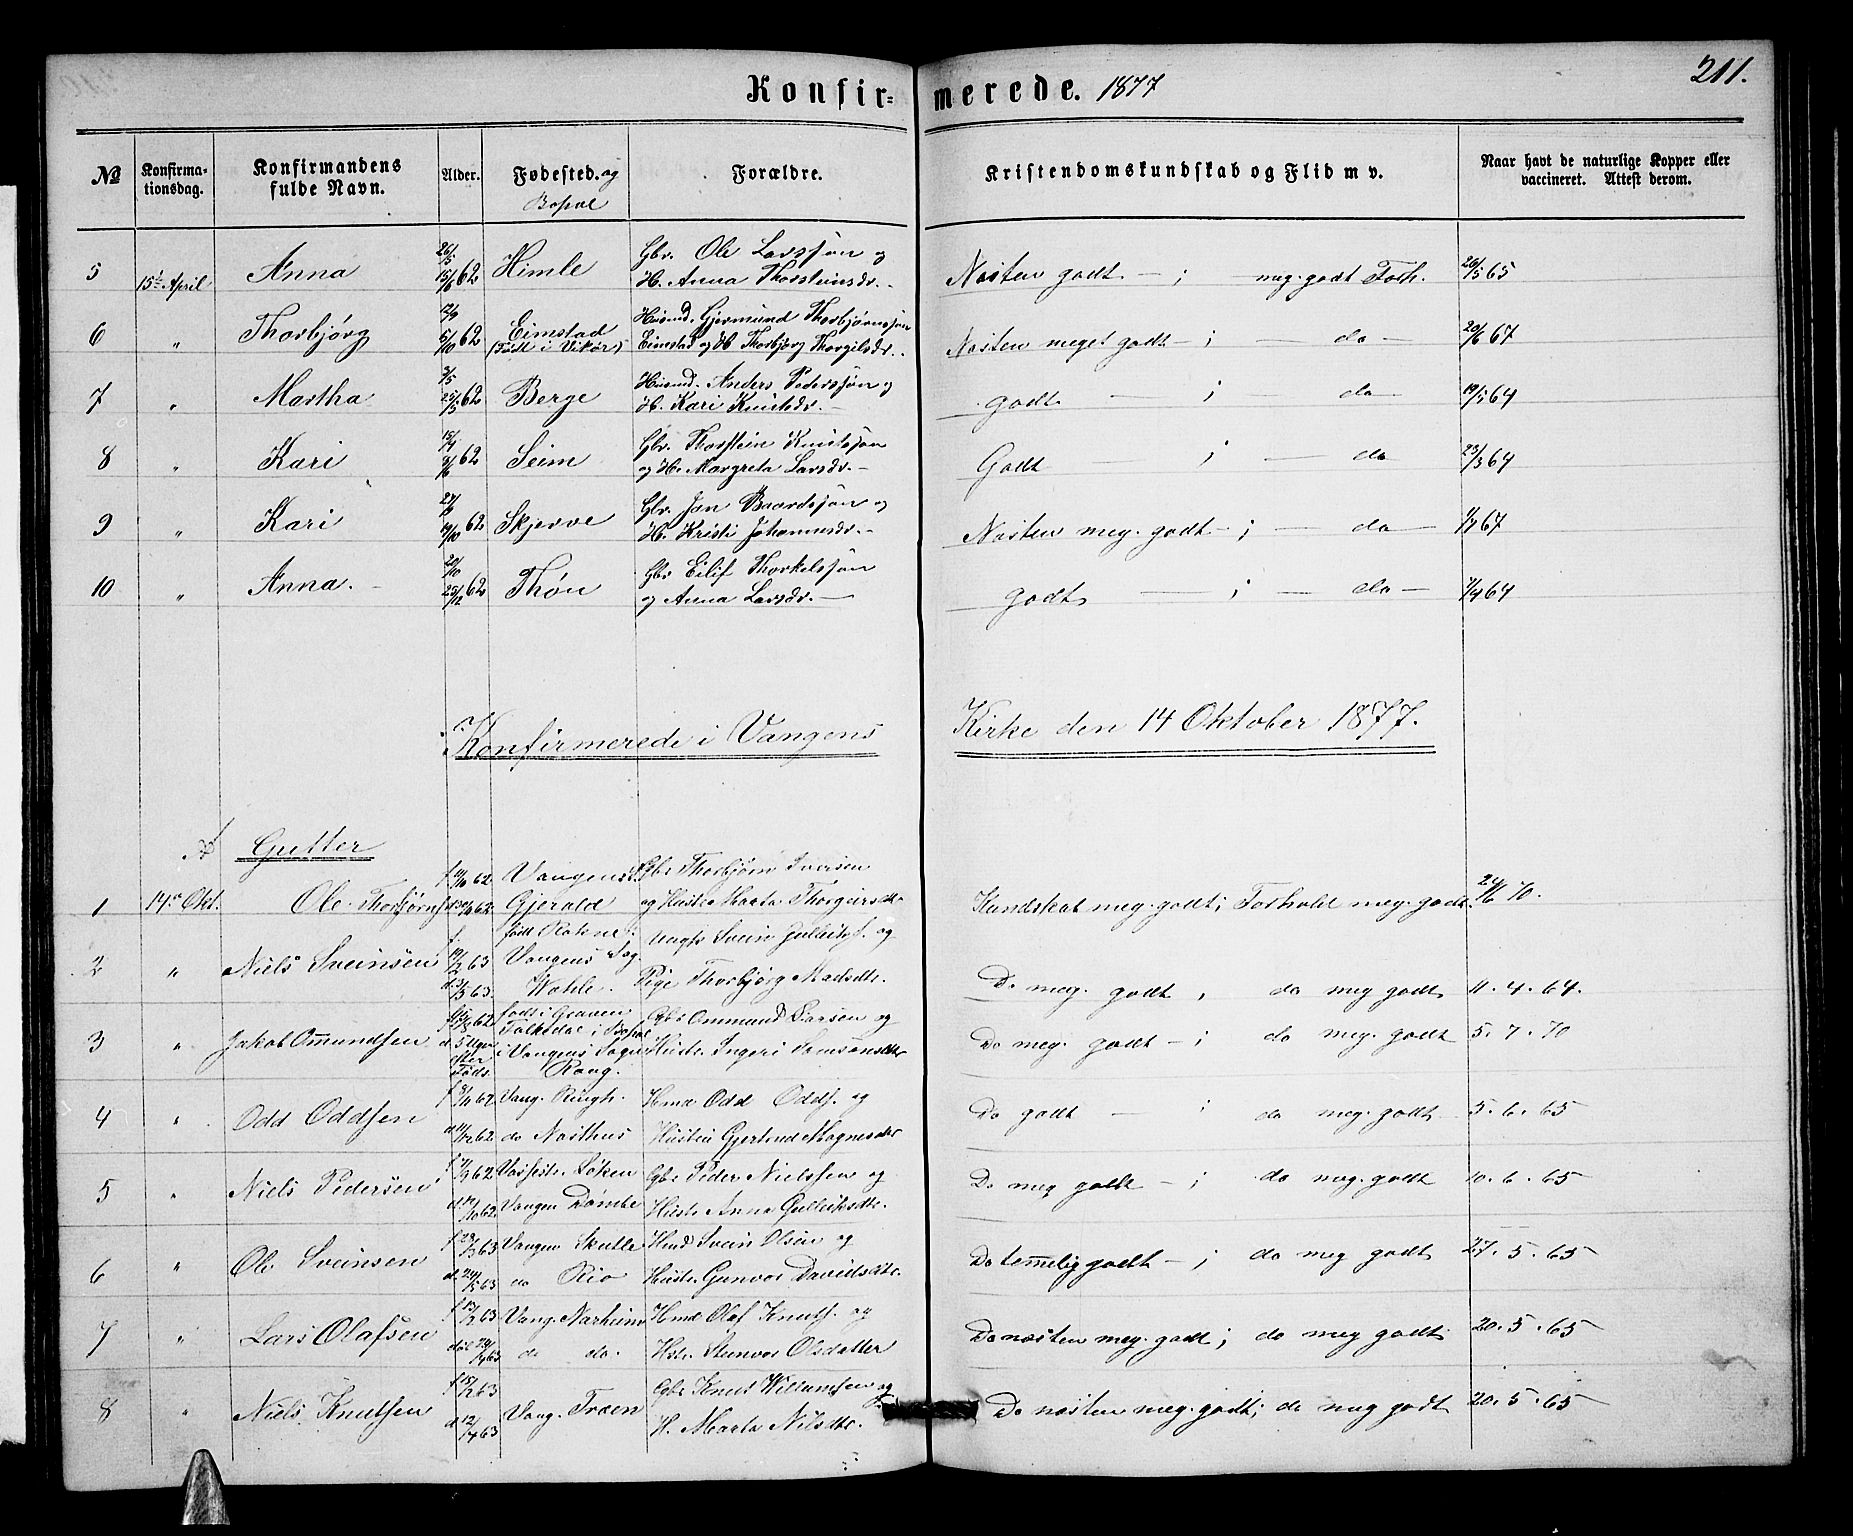 Konfir= merede. 1877 211.
№ Konfirma-tionsdag. Konfirmandens fulde Navn. Alder. Fødested. og Bopæl Forældre. Kristendomskundskab og Flid m v. Naar havt de naturlige Kopper eller vaccineret. Attest derom.
5 15de April Anna 26/5 15/6 62 Himle Gbr. Ole Larssøn og
H. Anna Thorsteinsdr. Næsten godt — ; meg. godt Forh. 26/5 65
6 " Thorbjørg 12/9 5/10 62 Eimstad (Født i Vikør) Husmd. Gjermund Thorbjørnssøn
Eimstad og H Thorbjørg Thorgilsdr. Næsten meget godt — ; — do — 20/6 67
7 " Martha 9/5 25/5 62 Berge Husmd. Anders Pederssøn og
H. Kari Knutsdr. — godt — ; do — 19/5 64
8 " Kari 15/4 8/6 62 Seim Gbr. Thorstein Knutssøn
og H. Margreta Larsdr. — Godt ; — do 23/3 64
9 " Kari 19/10 62 Skjerve Gbr. Jon Baardssøn og
H. Kristi Johannesdr. — Næsten meg. godt — ; — do — 1/7 67
10 " Anna. — 20/10 25/12 62 Thøn Gbr Eilif Thorkelssøn
og Anna Larsdr. — godt — ; — do — 7/4 64
Konfirmerede i Vangens Kirke den 14 Oktober 1877.
A Gutter
1 14de Okt. Ole Thorbjørns f 11/10 62. Vangens S. Gjerald Gbr Thorbjørn Iversen
og Hustru Marta Thorgeirsdtr Kundskab meg. godt; Forhold meg. godt. 24/6 70.
2 " Niels Sveinsen f. 19/2 63 d 3/5 63. født Vangens Sog. Ungk Svein Gulleiks. og
Pige Thorbjørg Madsdtr. Do meg. godt , do meg godt 11. 4. 64.
3 " Jakob Ommundsen d 5 Uger efter Føds. født i Graven Folkedal i Bopæl i Vangens Sogn Rong. Gbr Ommund Larsen og
Hustr. Ingeri Simonsdtr Do meg. godt — ; do meg. godt 5. 7. 70
4 " Odd Oddsen Vang. Ringh. do Næsthus Hmd Odd Odds. og
Hustru Gjertrud Magnesdtr Do godt — ; do meg. godt 5. 6. 65
5 " Niels Pedersen Vossestr. Løken Vangen Dømbe Gbr Peder Nielssen og
Hustr Anna Gulleiksdtr. Do meg godt — ; do meg. godt 10. 6. 65
6 " Ole Sveinsen f 23/3 63 d. 24/5 63 Vangen Skutle do Rio Hmd Svein Olsen og
Hustr. Gunvor Davidsdtr. Do temmelig godt — ; do meg godt 27. 5. 65
7 " Lars Olafsen f 13/2 63 Vang. Narheim do do. Hmd Olaf Knuts. og
Hstr. Steinvor Olsdatter Do næsten meg. godt; do meg godt 20. 5. 65
8 " Niels Knutsen f 15/2 63 d 12/4 63 Vang. Træen Gbr Knut Williamsen og
H. Marta Nilsdtr. Do næsten meg. godt; do meg godt 20. 5. 65